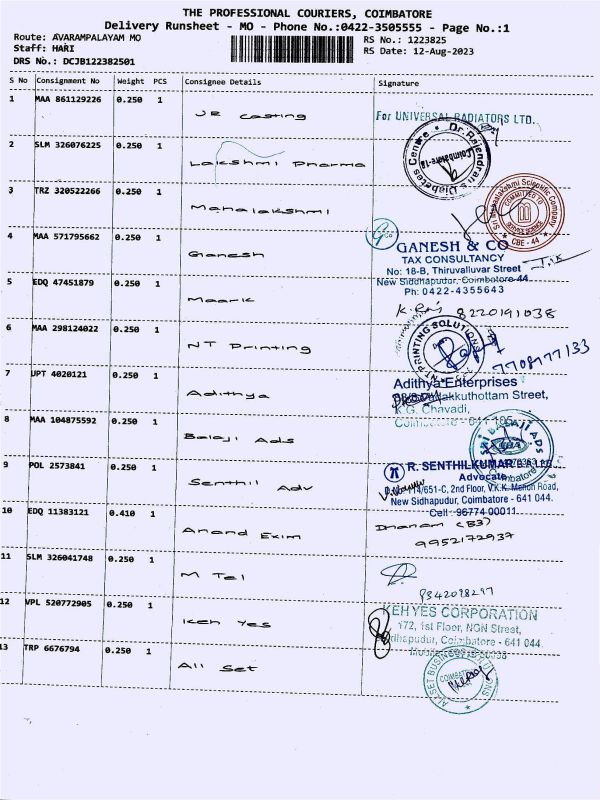 THE PROFESSIONAL COURIERS, COIMBATORE
Delivery Runsheet - MO - Phone No.:0422-3505555 - Page No.:1
Route: AVARAMPALAYAM MO
RS No.: 1223825
Staff: HARI
RS Date: 12-Aug-2023
DRS No.: DCJB122382501
S No Consignment No Weight PCS Consignee Details Signature
1 MAA 861129226 0.250 1 JR Casting
For UNIVERSAL RADIATORS LTD.
2 SLM 326076225 0.250 1 Lakshmi Pharma
Dr. Rajendran's Diabetes Centre
Coimbatore-18
3 TRZ 320522266 0.250 1 Mahalakshmi
Scientific Company
COMMITTED TO
SERVICE SCIENCE
CBE - 44
4 MAA 571795662 0.250 1 Ganesh
GANESH & CO
TAX CONSULTANCY
No: 18-B, Thiruvalluvar Street
New Siddhapudur, Coimbatore-44
Ph: 0422-4355643
5 EDQ 47451879 0.250 1 Maark
8220191038
6 MAA 298124022 0.250 1 NT Printing
NT PRINTING SOLUTIONS
7708777133
7 UPT 4020121 0.250 1 Adithya
Adithya Enterprises
Street,
K.G. Chavadi,
8 MAA 104875592 0.250 1 Balaji Ads
BALAJI ADS
9 POL 2573841 0.250 1 Senthil Adv
R. SENTHILKUMAR
Advocate
114/651-C, 2nd Floor, V.K.K. Menon Road,
New Sidhapudur, Coimbatore - 641 044.
Cell : 96774 00011
10 EDQ 11383121 0.410 1 Anand Exim
Dhanam (B3)
9952172937
11 SLM 326041748 0.250 1 M Tel
9342098297
12 VPL 520772905 0.250 1 Keh Yes
KEH YES CORPORATION
172, 1st Floor, NGN Street,
Coimbatore - 641 044.
13 TRP 6676794 0.250 1 All Set
ALLSET BUSINESS SOLUTIONS